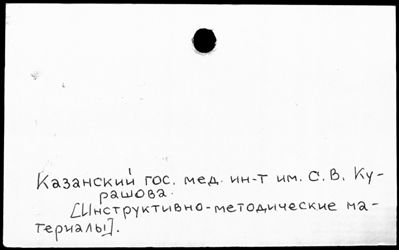 Казанский гос. мед. ин-т им. С. В. Ку-
рашова.
[Инструктивно-методические ма-
териалы].